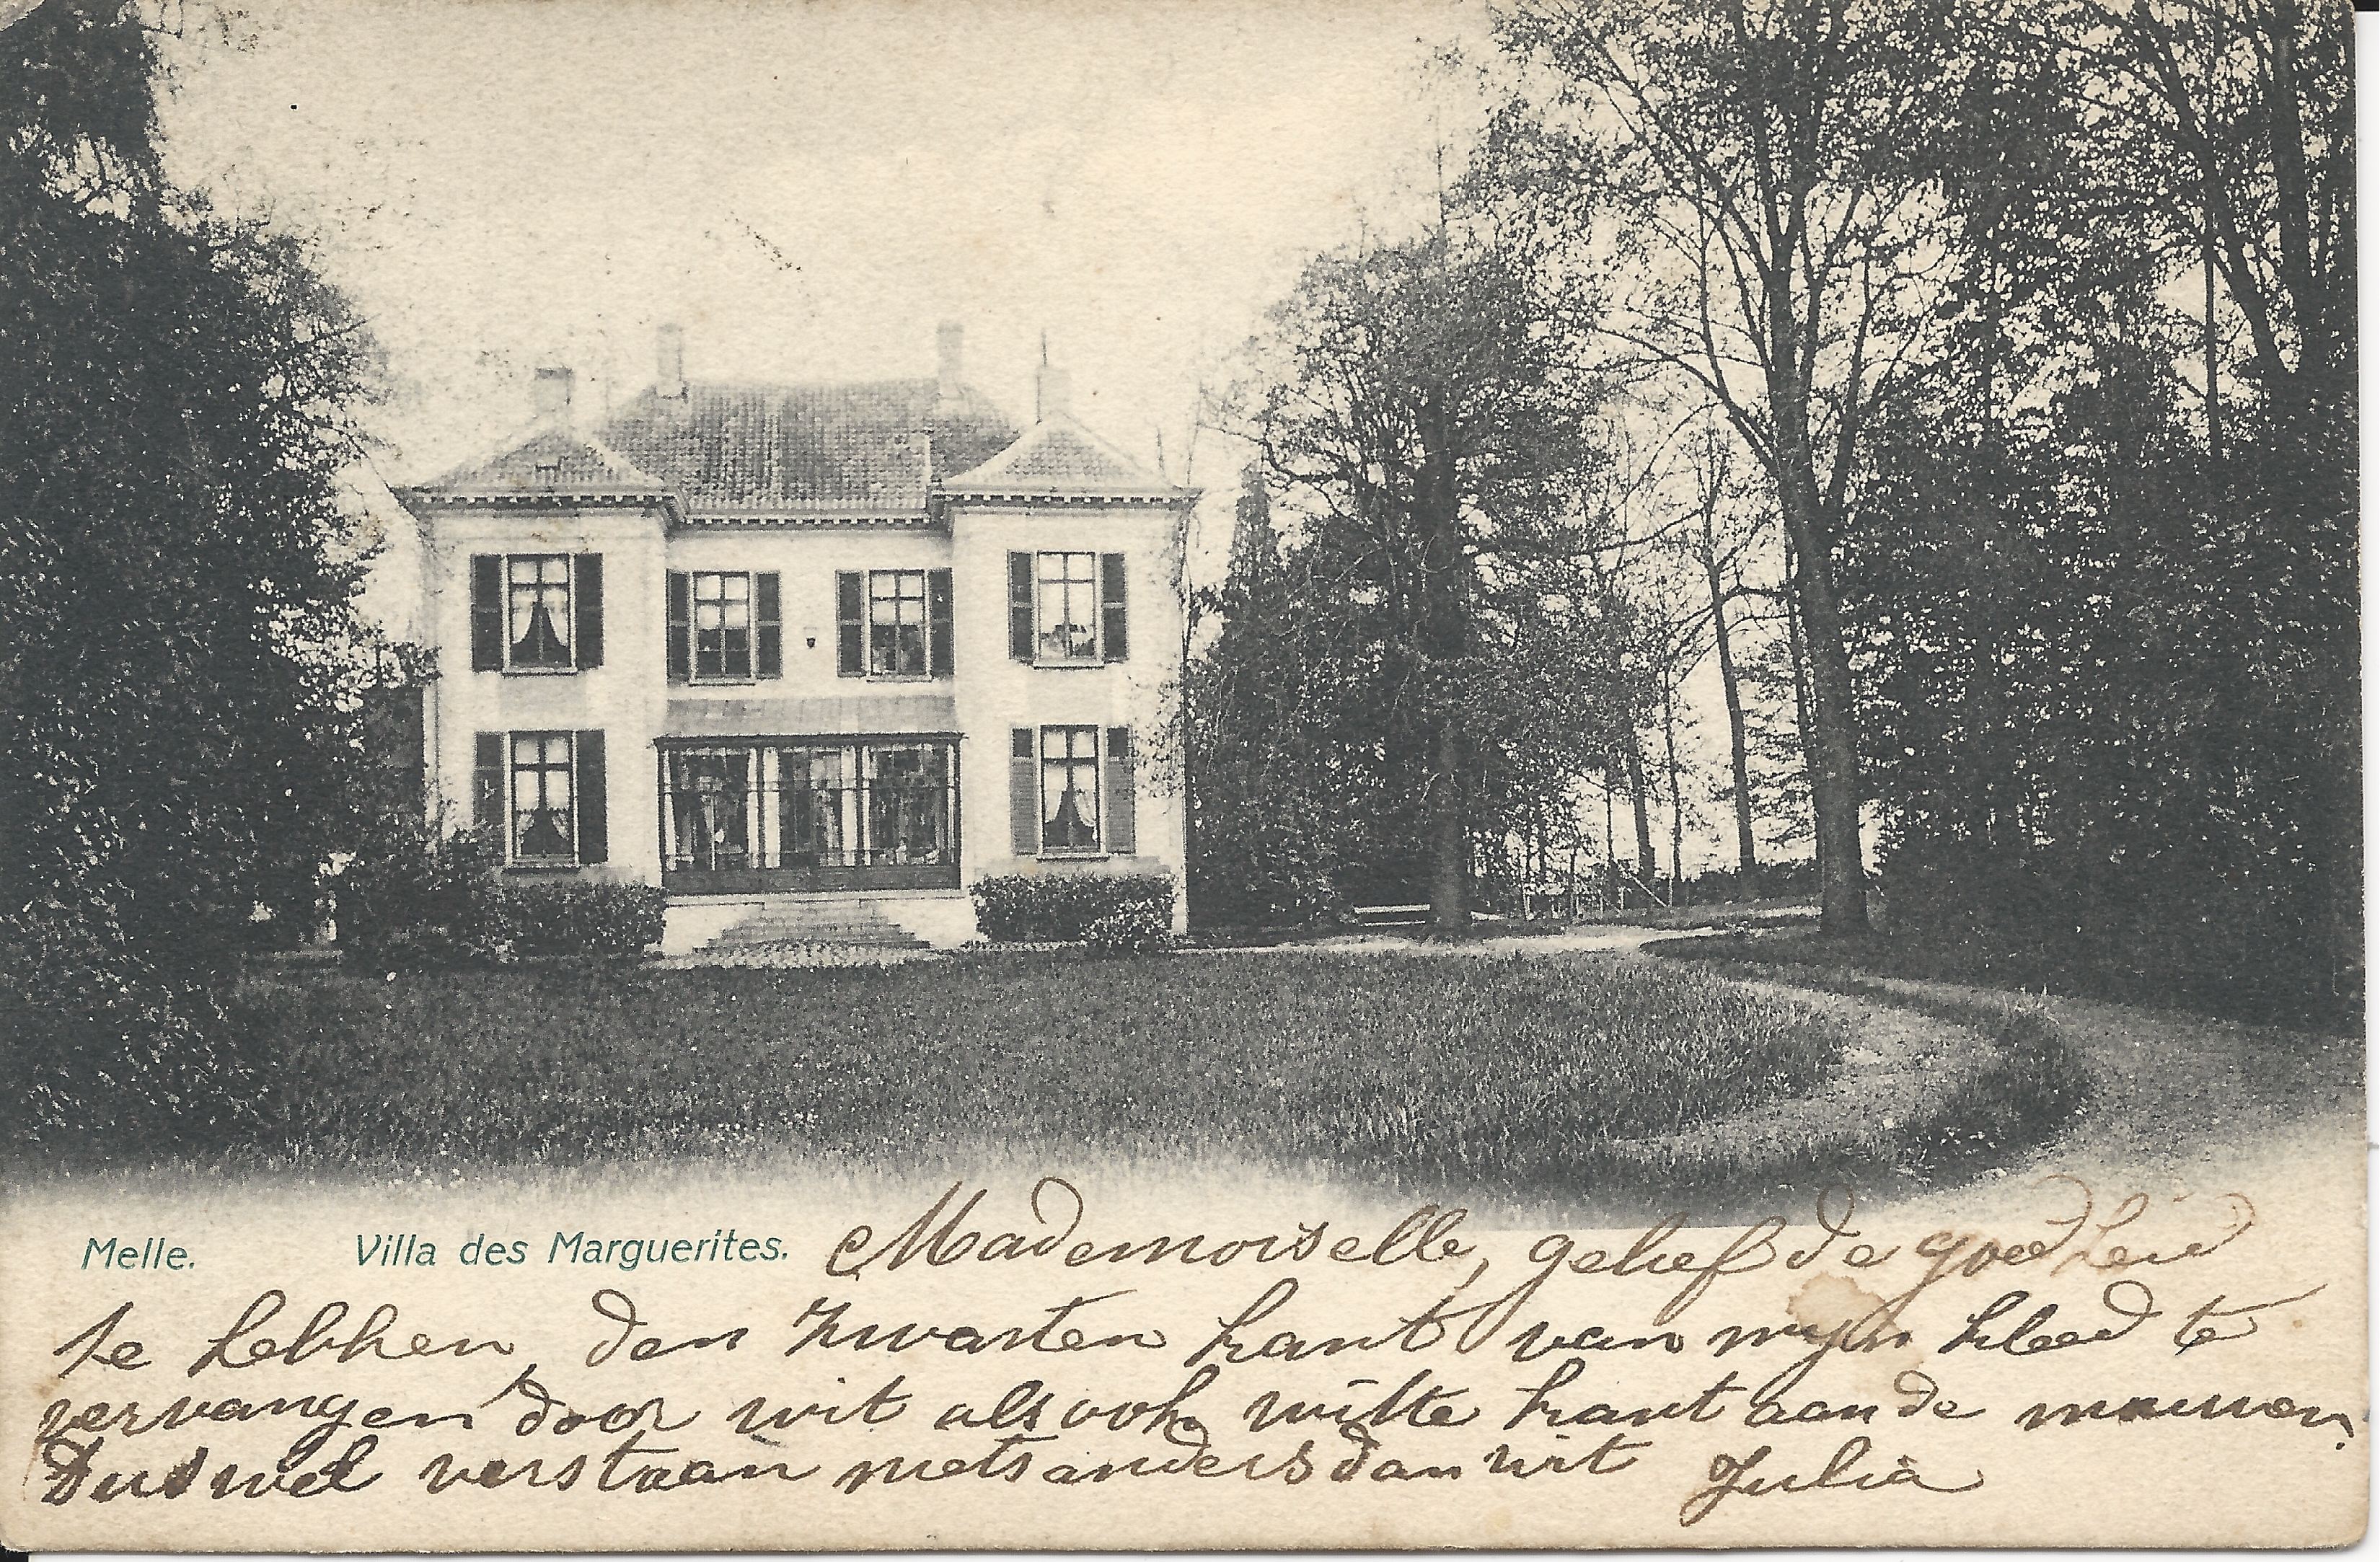 Melle. Villa des Marguerites. Mademoiselle, gelief de goedheid
te hebben, den zwarten kant van mijn kleed te
vervangen door wit alsook witte kant aan de mouwen.
Dus wel verstaan niets anders dan wit Julia